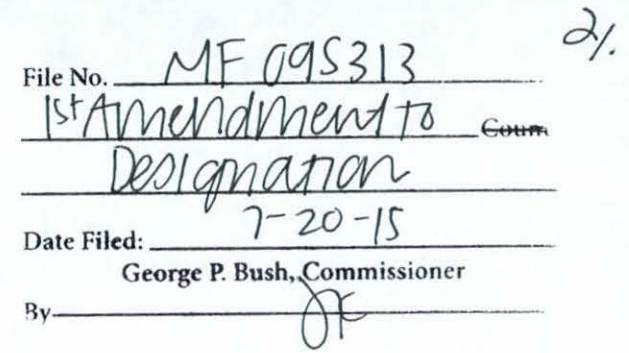 21.
File No. MF 095313
1st Amendment to Coun
Designation
Date Filed: 7-20-15
George P. Bush, Commissioner
By